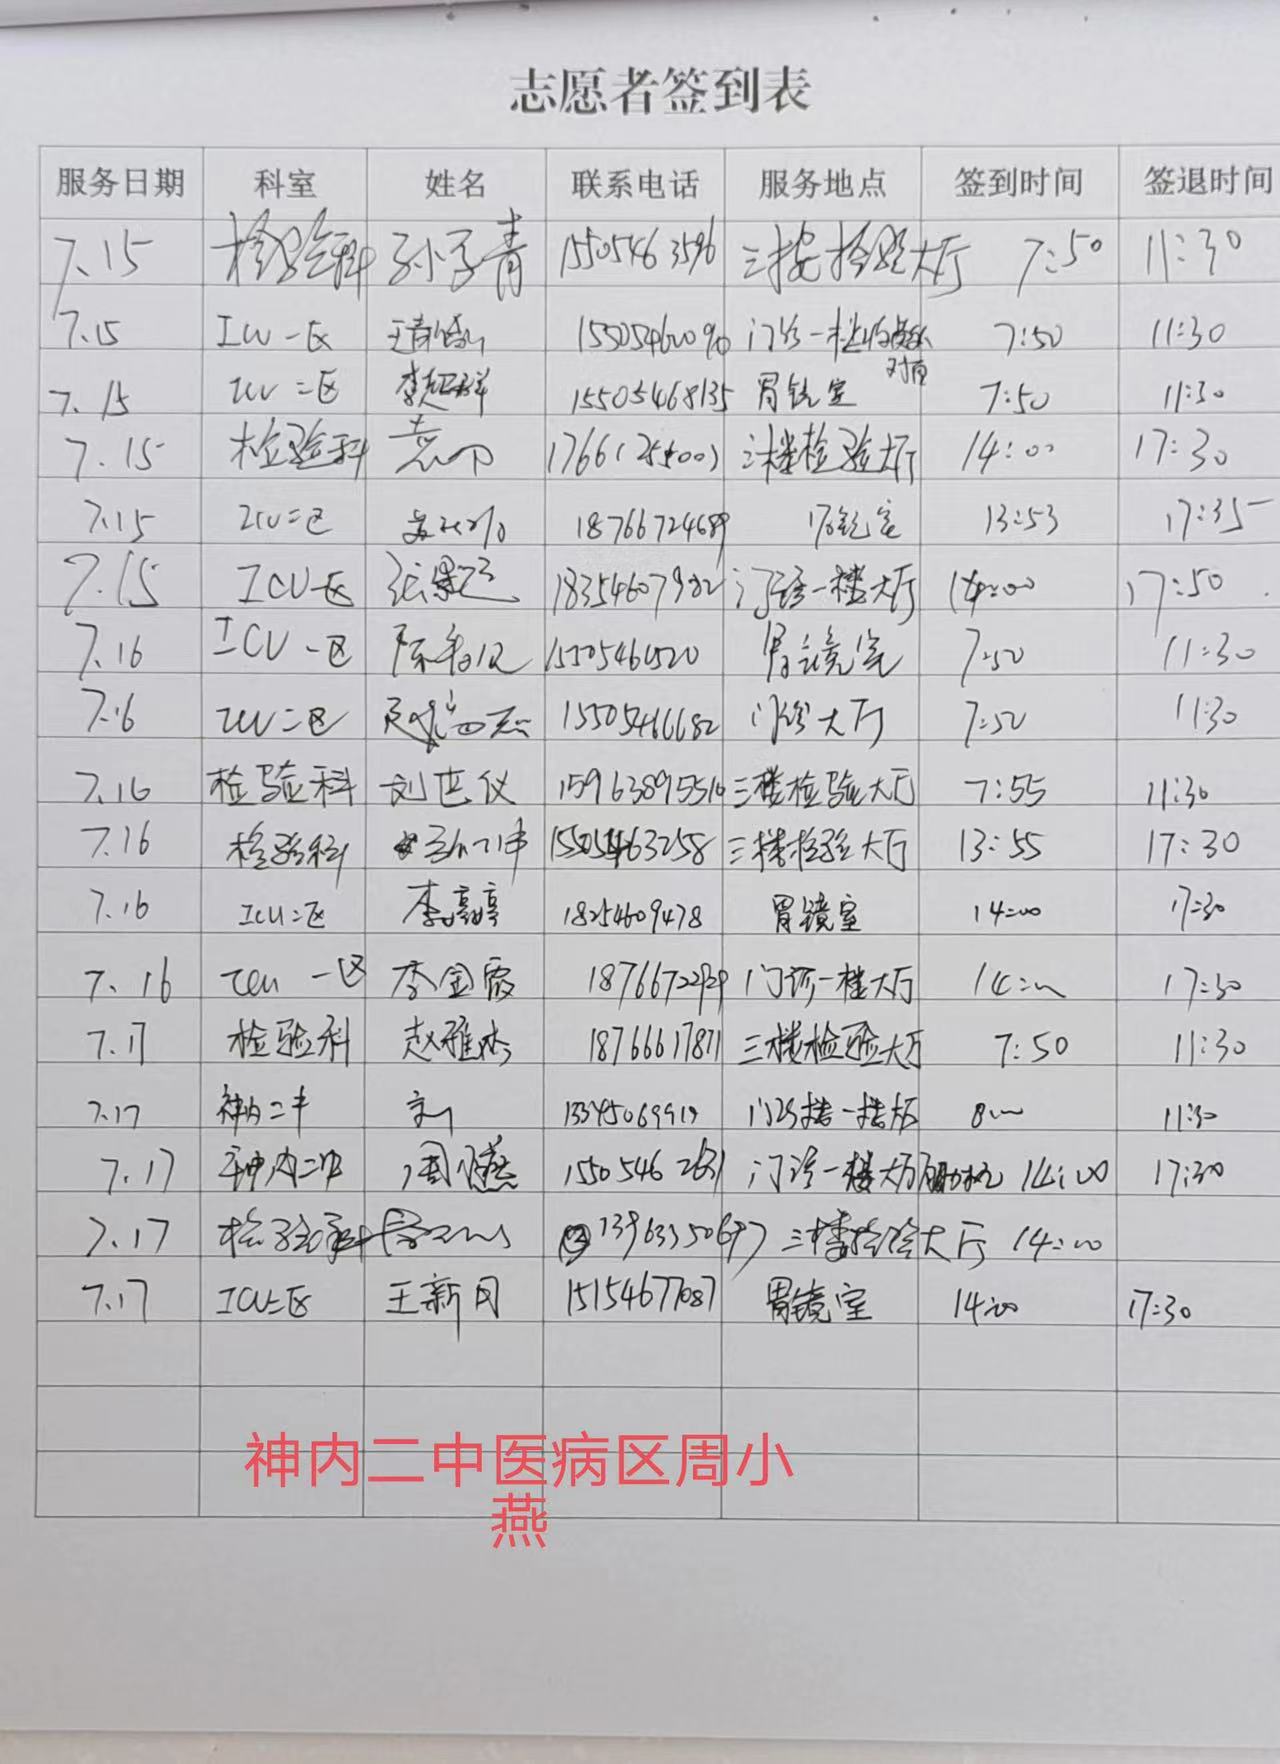 志愿者签到表
服务日期 科室 姓名 联系电话 服务地点 签到时间 签退时间
7.15 检验科 孙子青 15505463596 三楼检验大厅 7:50 11:30
7.15 ICU一区 门诊一楼 对面 7:50 11:30
7.15 ICU二区 李超群 15505468135 胃镜室 7:50 11:30
7.15 检验科 三楼检验大厅 14:00 17:30
7.15 ICU二区 18766724689 胃镜室 13:53 17:35
7.15 ICU一区 18354607982 门诊一楼大厅 14:00 17:50
7.16 ICU一区 胃镜室 7:50 11:30
7.16 ICU二区 15505466682 门诊大厅 7:50 11:30
7.16 检验科 刘世仪 三楼检验大厅 7:55 11:30
7.16 检验科 15505463258 三楼检验大厅 13:55 17:30
7.16 ICU二区 李婷婷 18254609478 胃镜室 14:00 17:30
7.16 ICU一区 李金霞 门诊一楼大厅 14:00 17:30
7.17 检验科 赵雅杰 18766617871 三楼检验大厅 7:50 11:30
7.17 神内二中 8:00 11:30
7.17 神内二中 周小燕 15505462631 门诊一楼大厅 14:00 17:30
7.17 检验科 三楼检验大厅 14:00
7.17 ICU二区 王新月 15154677087 胃镜室 14:00 17:30
神内二中医病区周小
燕